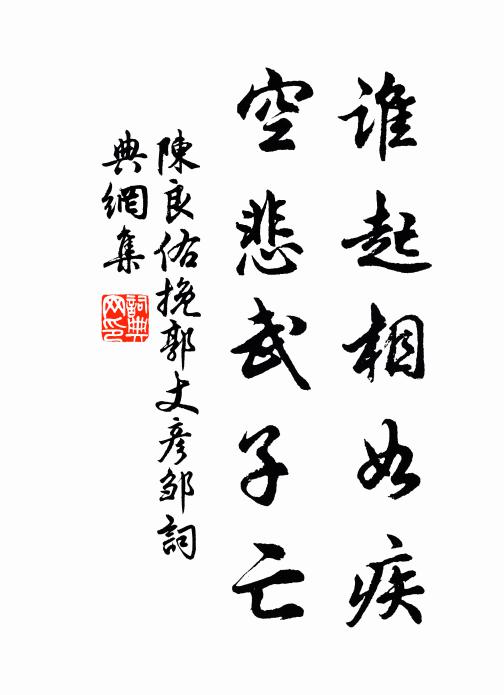 誰起相如疾
空悲武子亡
陳良佑挽郭丈彥邹詞
典網集
詞典网印